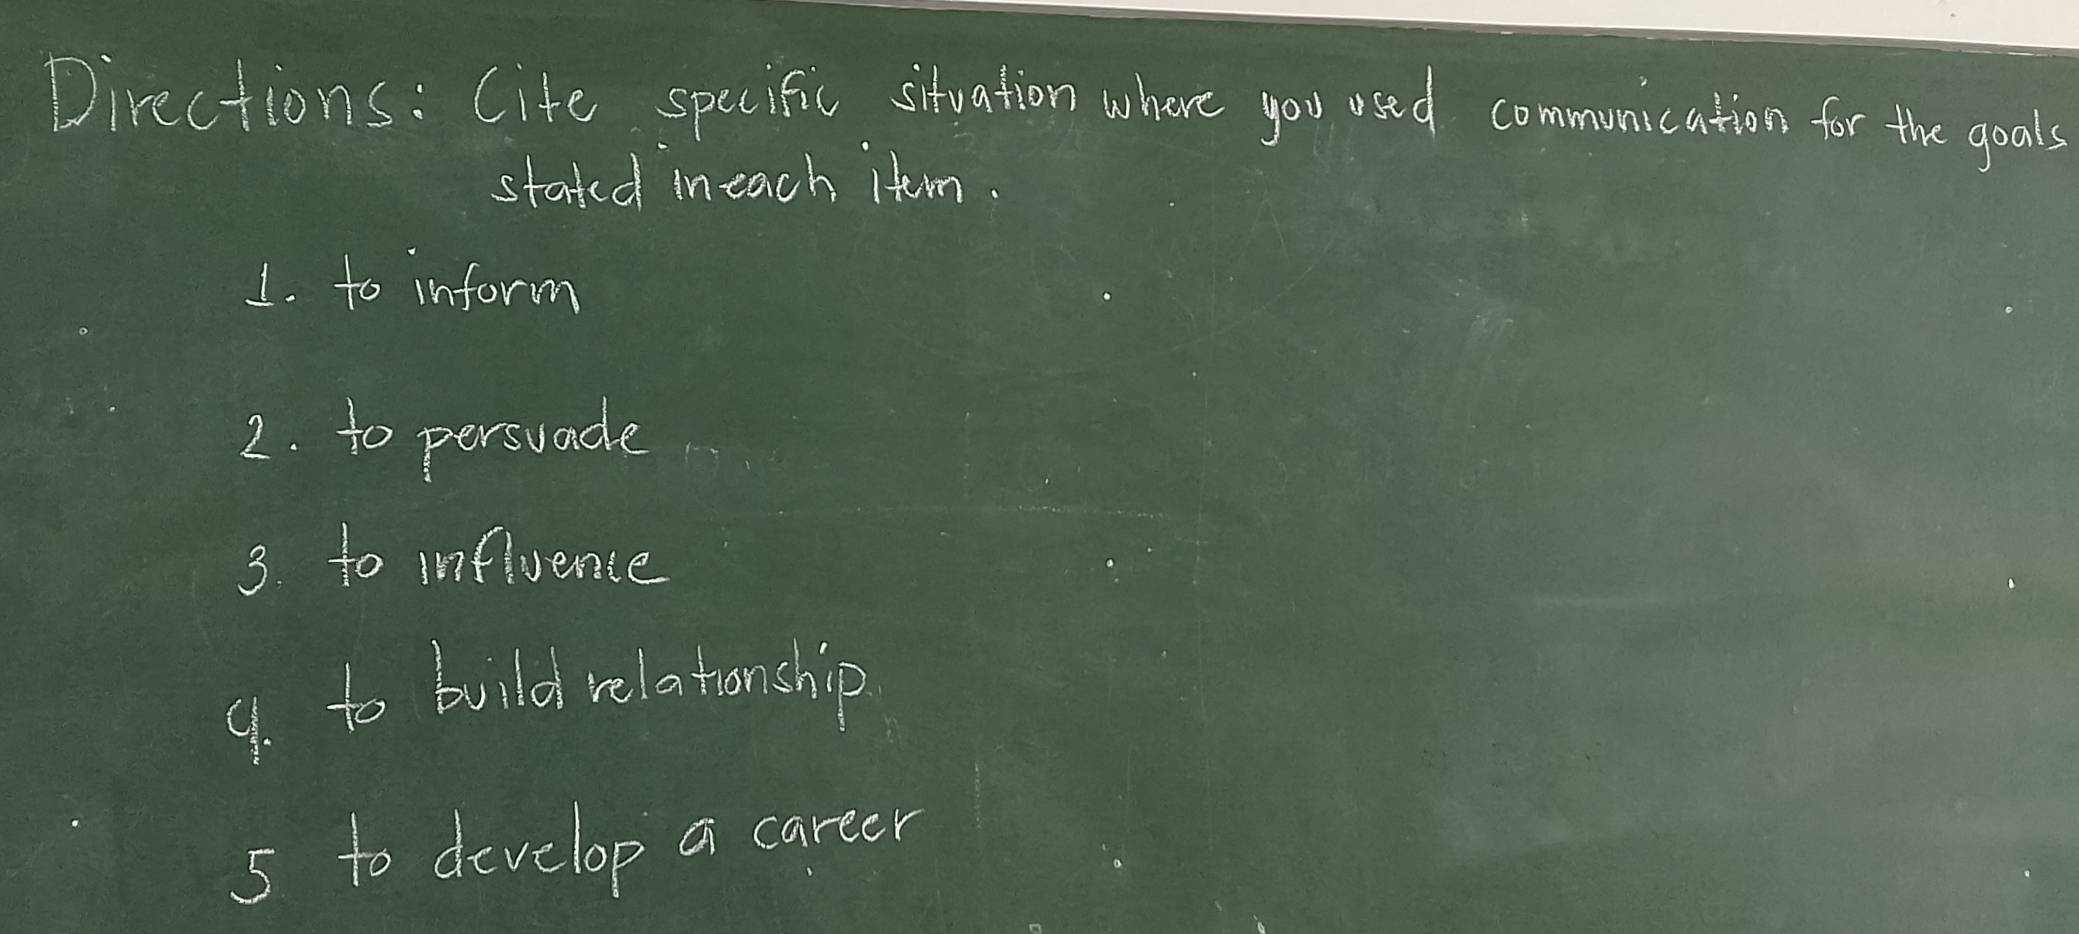 Directions: Cite specific situation where you used communication for the goals
stated in each item.
1. to inform
2. to persuade
3. to influence
4. to build relationship
5 to develop a career